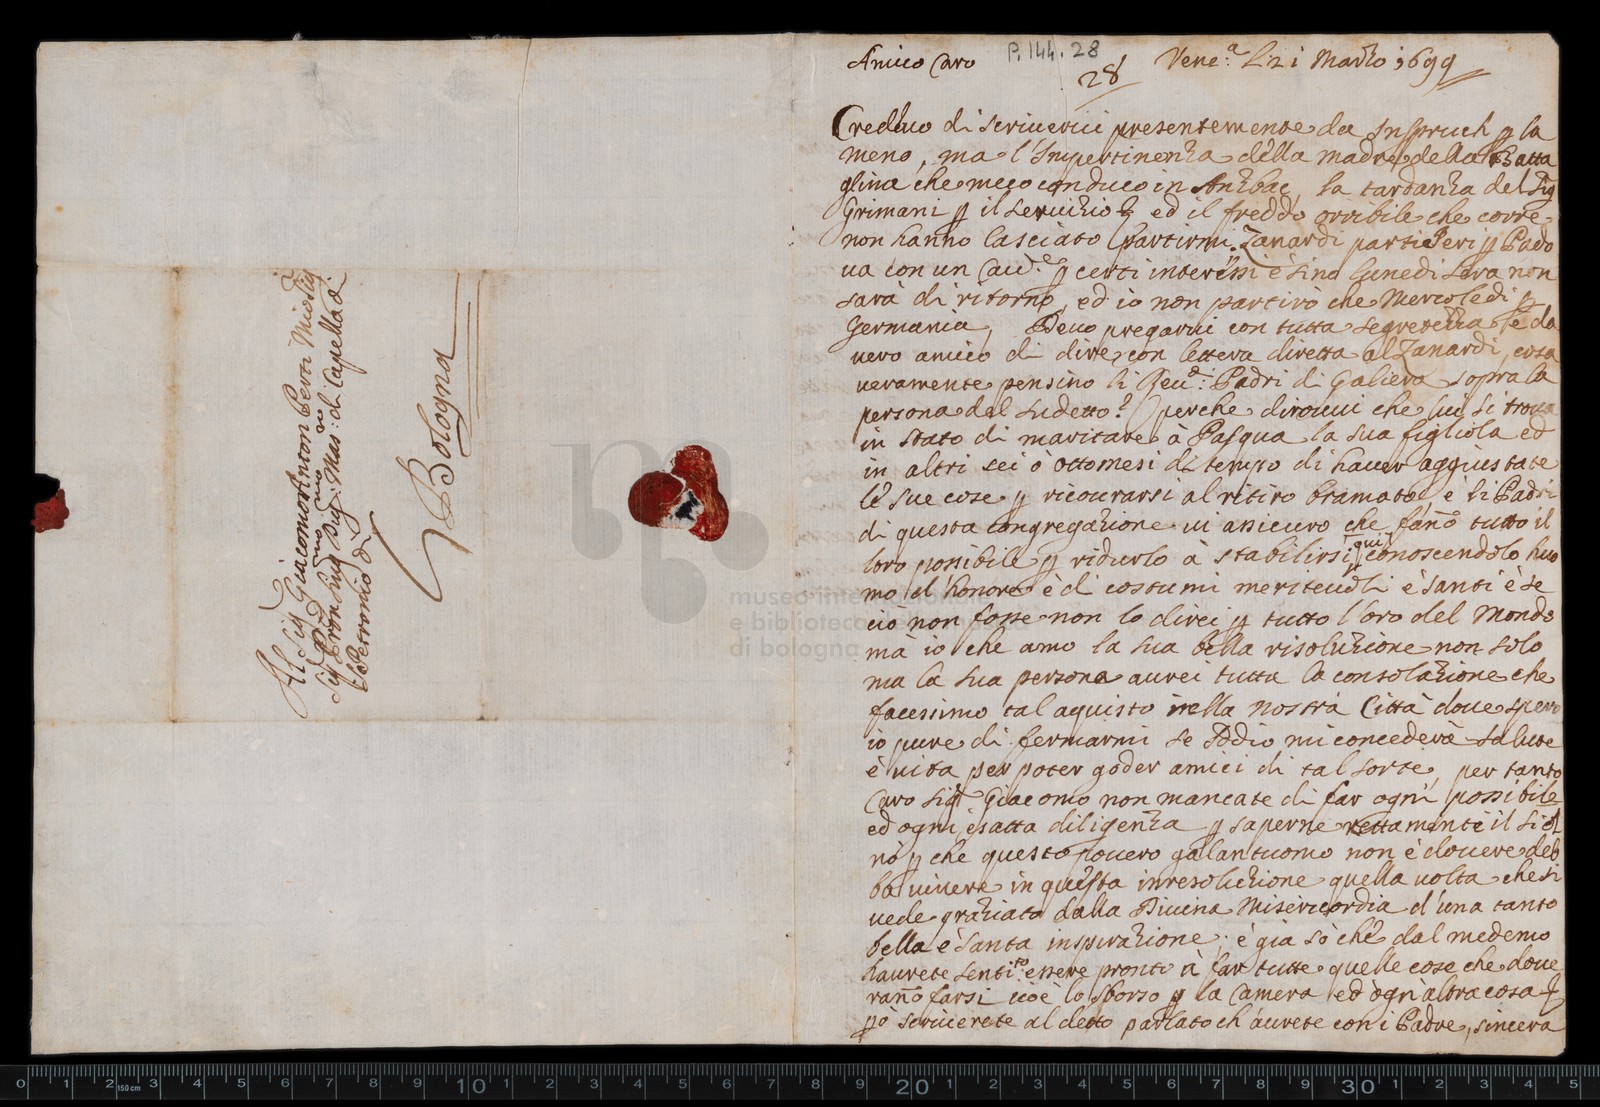 Al Sig:r Giacomo Antonio Perti Mio Sig:
Sig: e Pron Sing: Mas: di Capella di
S Petronio di
Bologna
museo internazionale
e biblioteca della musica
di bologna
Amico Caro P.144.28 Venez:a Li 21 Marzo 1699
28
Credevo di scrivervi presentemente da Inspruch p la
meno, ma l'Impertinenza della madre della Batta
glina che meco conduco in Anzbac, la tardanza del Sig
Grimani p il servizio ed il freddo orribile che corre
non hanno lasciato partirmi. Zanardi partì Ieri p Pado
va con un Cav:e p certi interessi è sino lunedi sera non
sarà di ritorno, ed io non partirò che Mercoledi p
Germania, Devo pregarvi con tutta segretezza è da
vero amico di dire con lettera diretta al Zanardi, cosa
veramente pensino li Reu:di Padri di Galiera sopra la
persona del sudetto? perche dirouui che lui si troua
in stato di maritare à Pasqua la sua figliola ed
in altri sei ò otto mesi di tempo di hauer aggiustate
le sue cose p ricourarsi al ritiro bramato è li Padri
di questa congregazione vi assicuro che fano tutto il
loro possibile p ridurlo à stabilirsi qui conoscendolo huo
mo d'honore è di costumi meriteuoli è santi è se
ciò non fosse non lo direi p tutto l'oro del Mondo
mà io che amo la sua bella risoluzione non solo
ma la sua persona aurei tutta la consolazione che
facessimo tal aquisto nella nostra Città doue spero
io pure di fermarmi se Iddio mi concederà salute
è vita per poter goder amici di tal sorte, per tanto
Caro Sig:r Giacomo non mancate di far ogni possibile
ed ogni esatta diligenza p saperne rettamente il si ol
nò p che questo povero galantuomo non è dovere deb
ba vivere in questa inresoluzione quella volta che si
vede graziato dalla Divina Misericordia d'una tanto
bella è santa inspirazione, è gia sò che dal medemo
haurete sentito essere pronto à far tutte quelle cose che doue
rano farsi cioè lo sborso p la Camera ed ogn'altra cosa
pò scriverete al detto parlato ch'aurete con i Padre, sincera